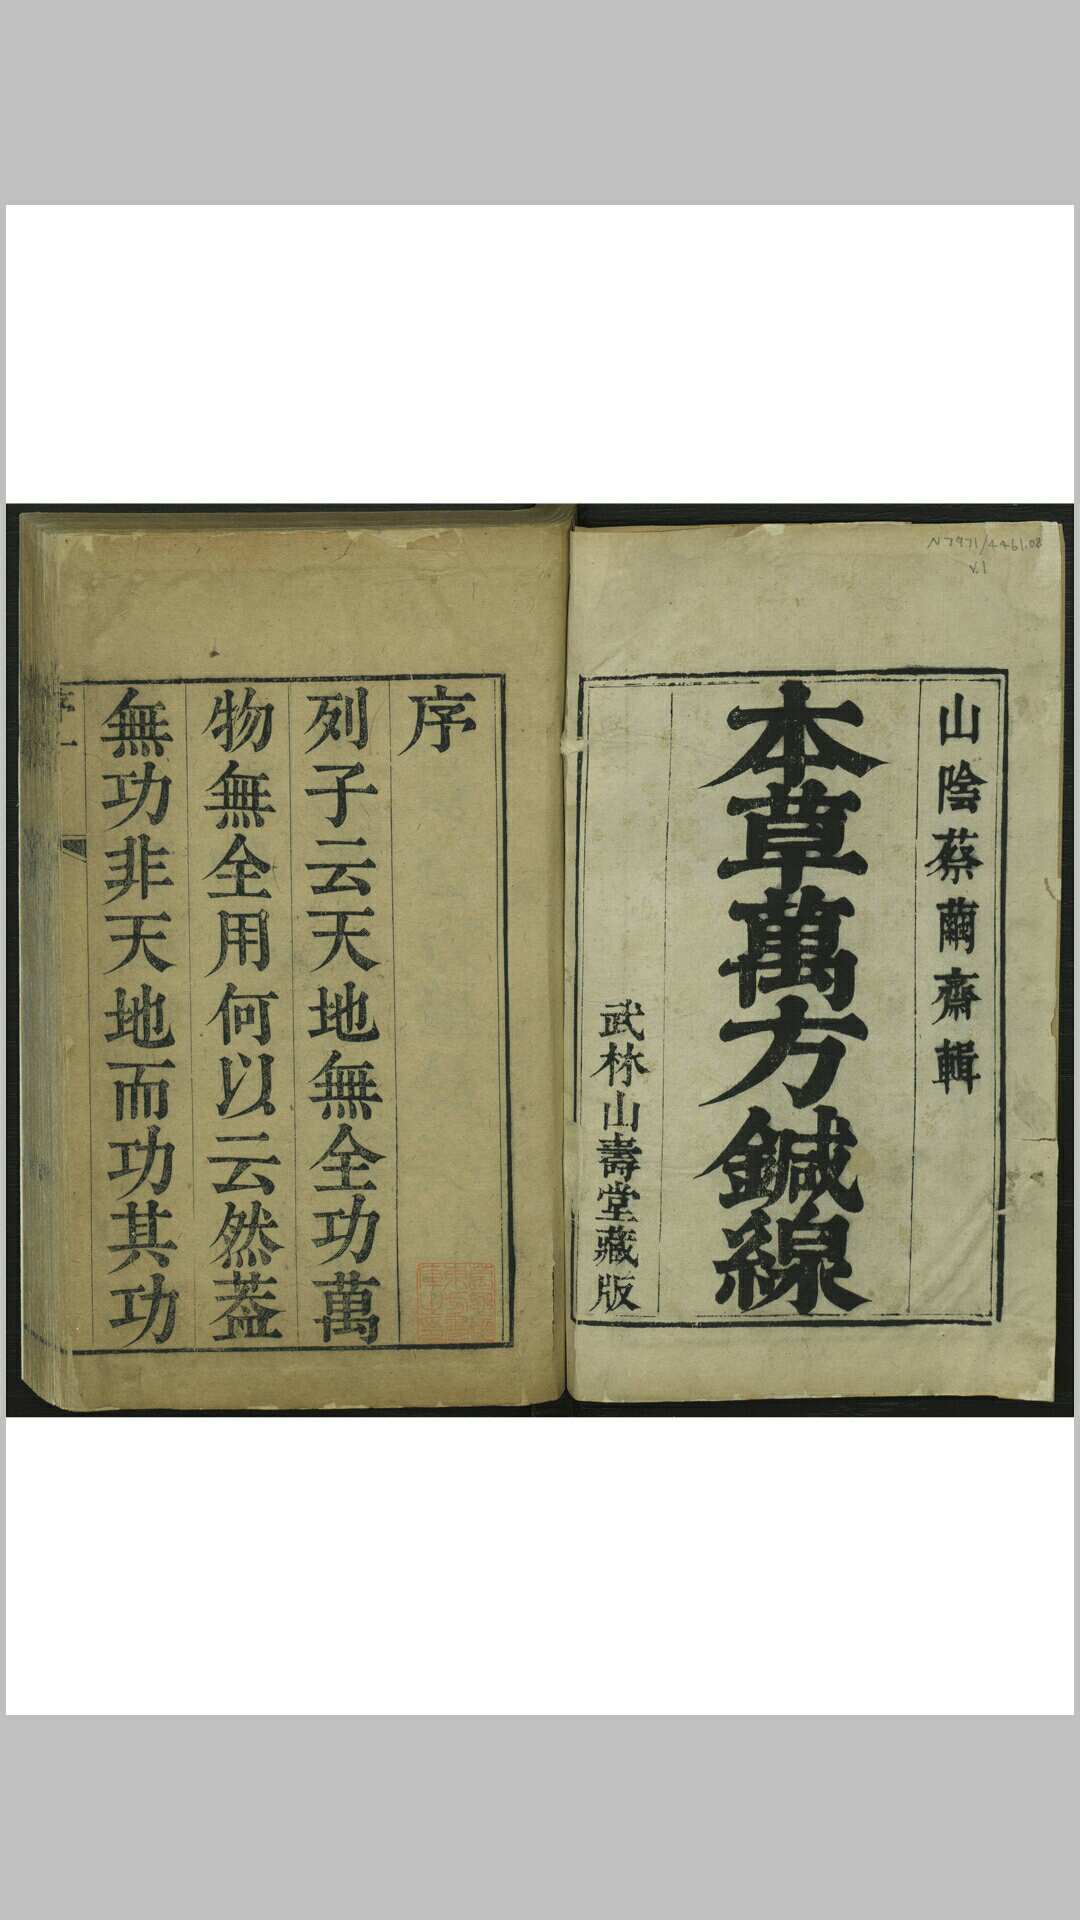 N7971/4461.08
v.1
山陰蔡繭齋輯
本草萬方鍼線
武林山壽堂藏版
序
列子云天地無全功萬
物無全用何以云然蓋
無功非天地而功其功
序一